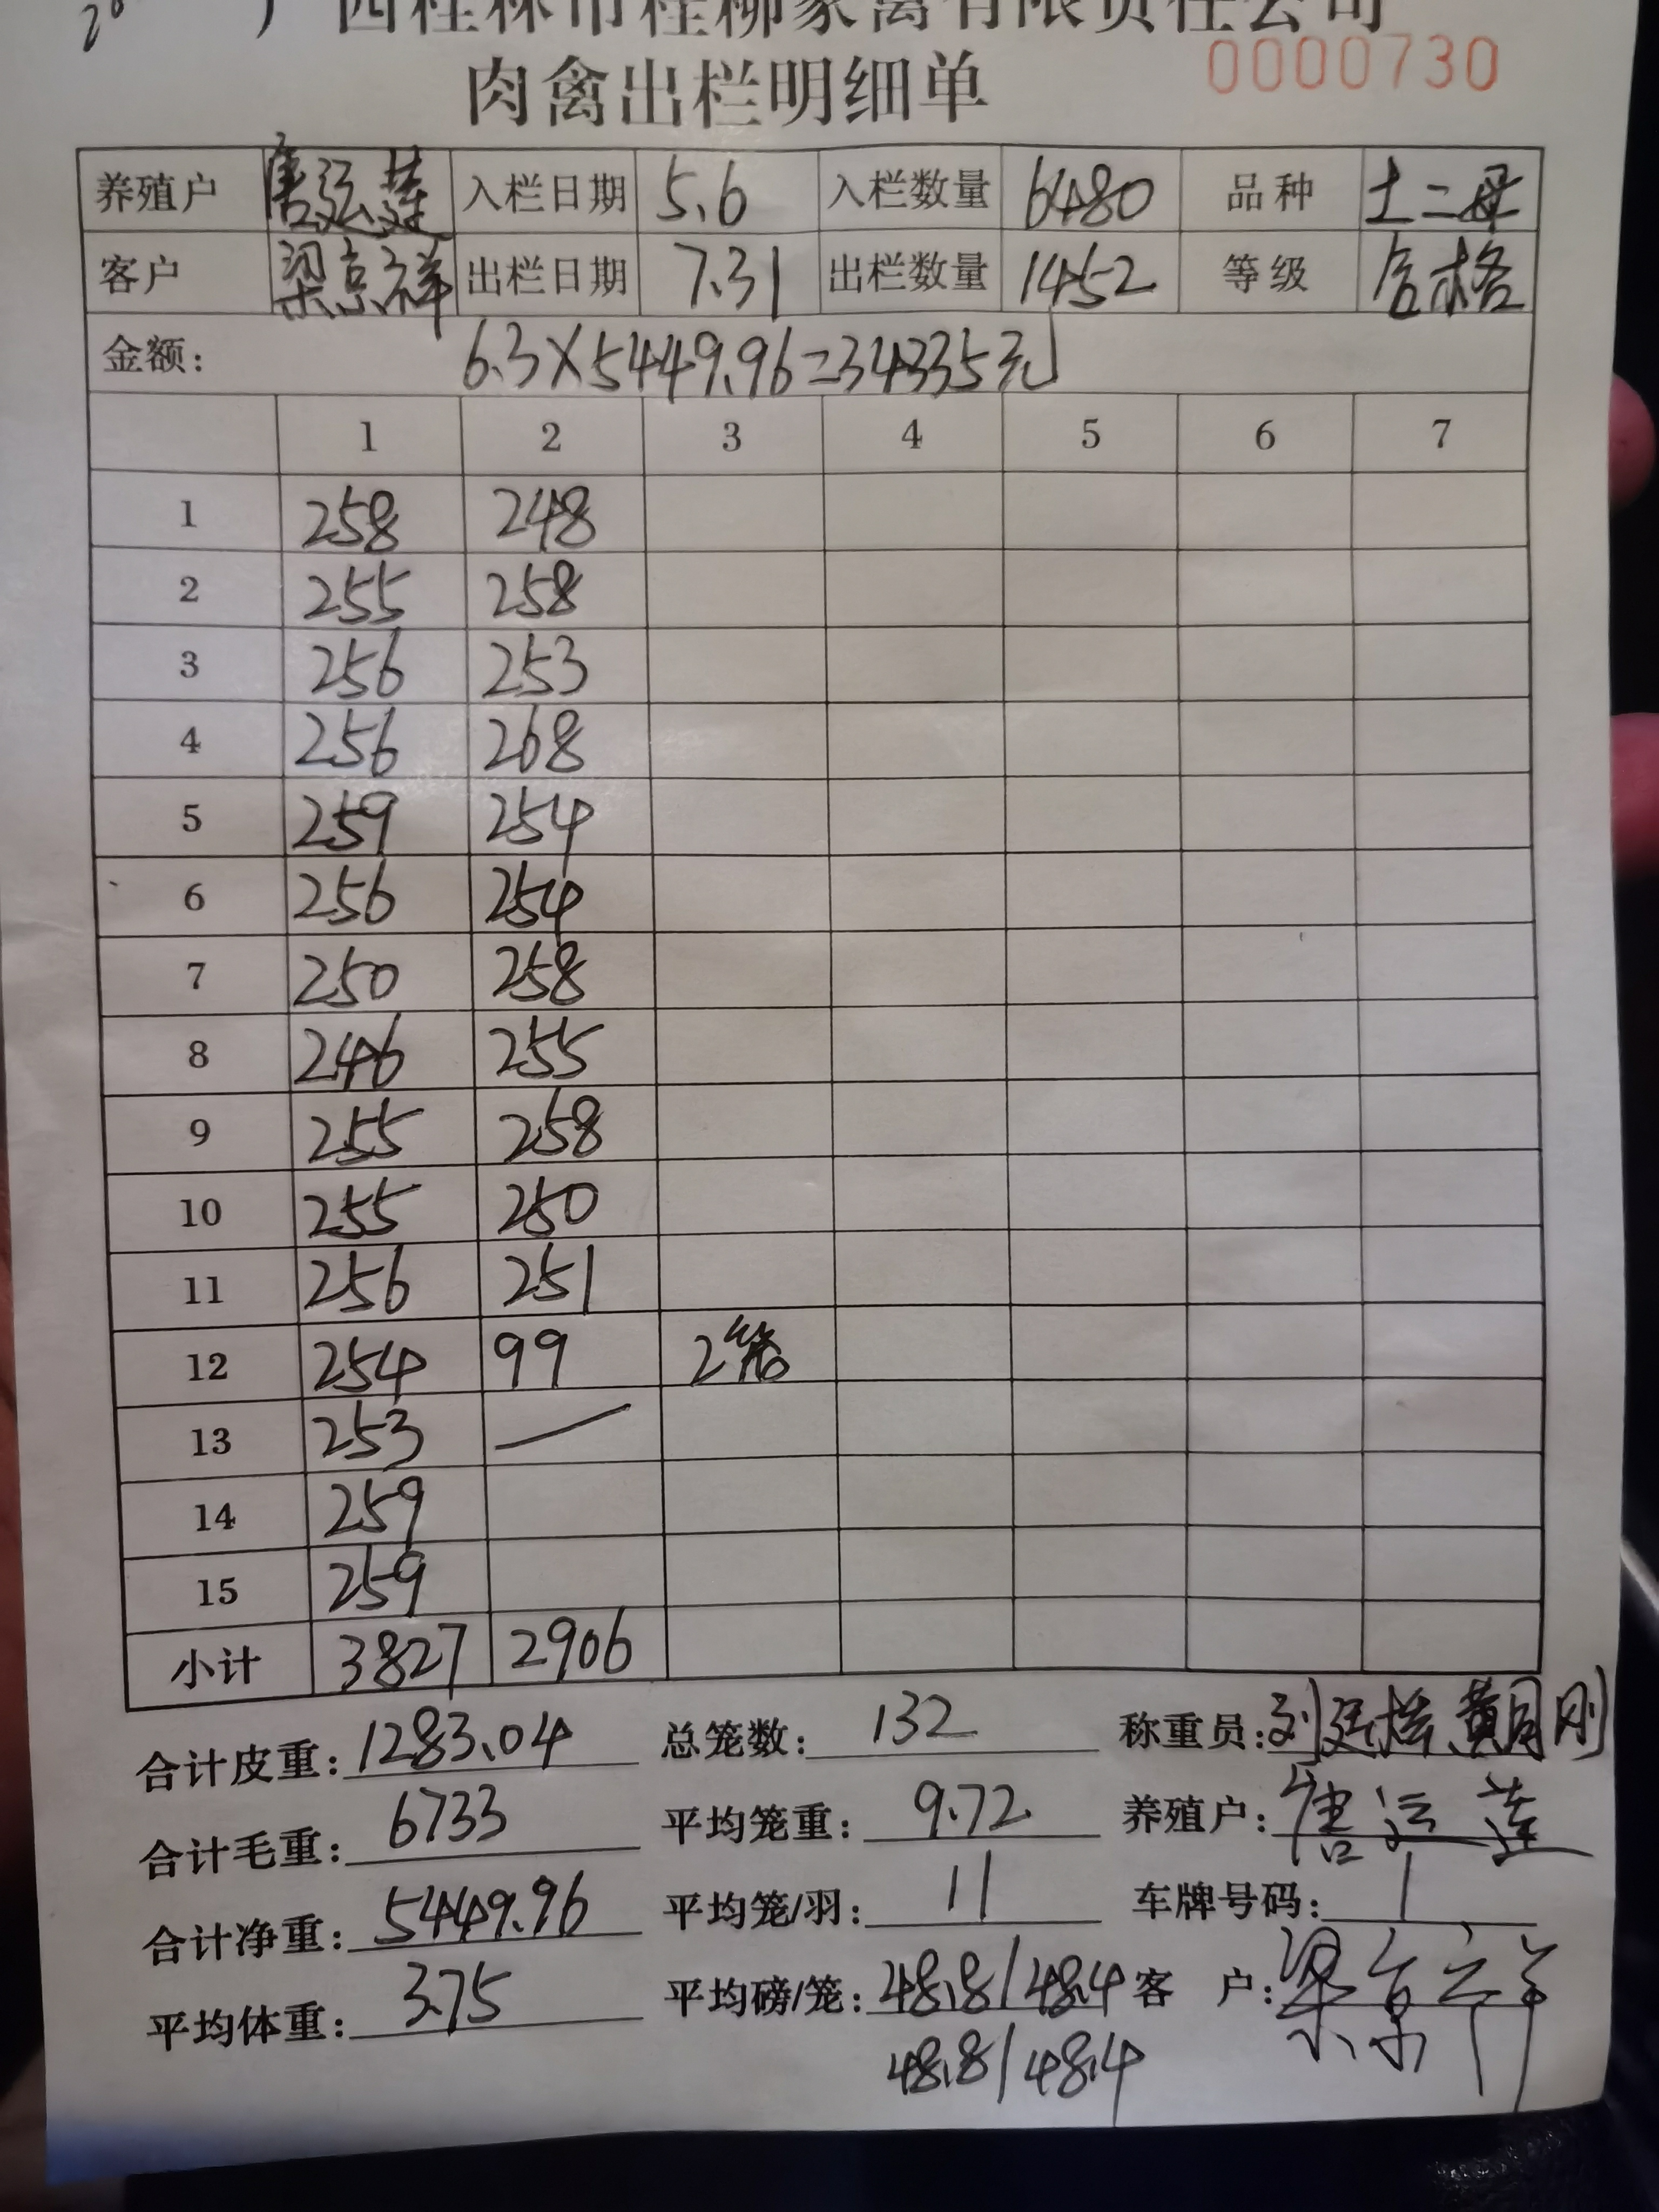 广西桂林市桂柳家禽有限责任公司
肉禽出栏明细单 0000730
养殖户 唐运莲 入栏日期 5.6 入栏数量 6480 品种 土二母
客户 梁京祥 出栏日期 7.31 出栏数量 1452 等级 合格
金额: 6.3×5449.96=34335元
1 2 3 4 5 6 7
1 258 248
2 255 258
3 256 253
4 256 268
5 259 254
6 256 254
7 250 258
8 246 255
9 255 258
10 255 250
11 256 251
12 254 99 2笼
13 253 —
14 259
15 259
小计 3827 2906
合计皮重: 1283.04 总笼数: 132 称重员:
合计毛重: 6733 平均笼重: 9.72 养殖户: 唐运莲
合计净重: 5449.96 平均笼/羽: 11 车牌号码: 1
平均体重: 3.75 平均磅/笼: 48.8/48.4 客 户: 梁京祥
48.8/48.4